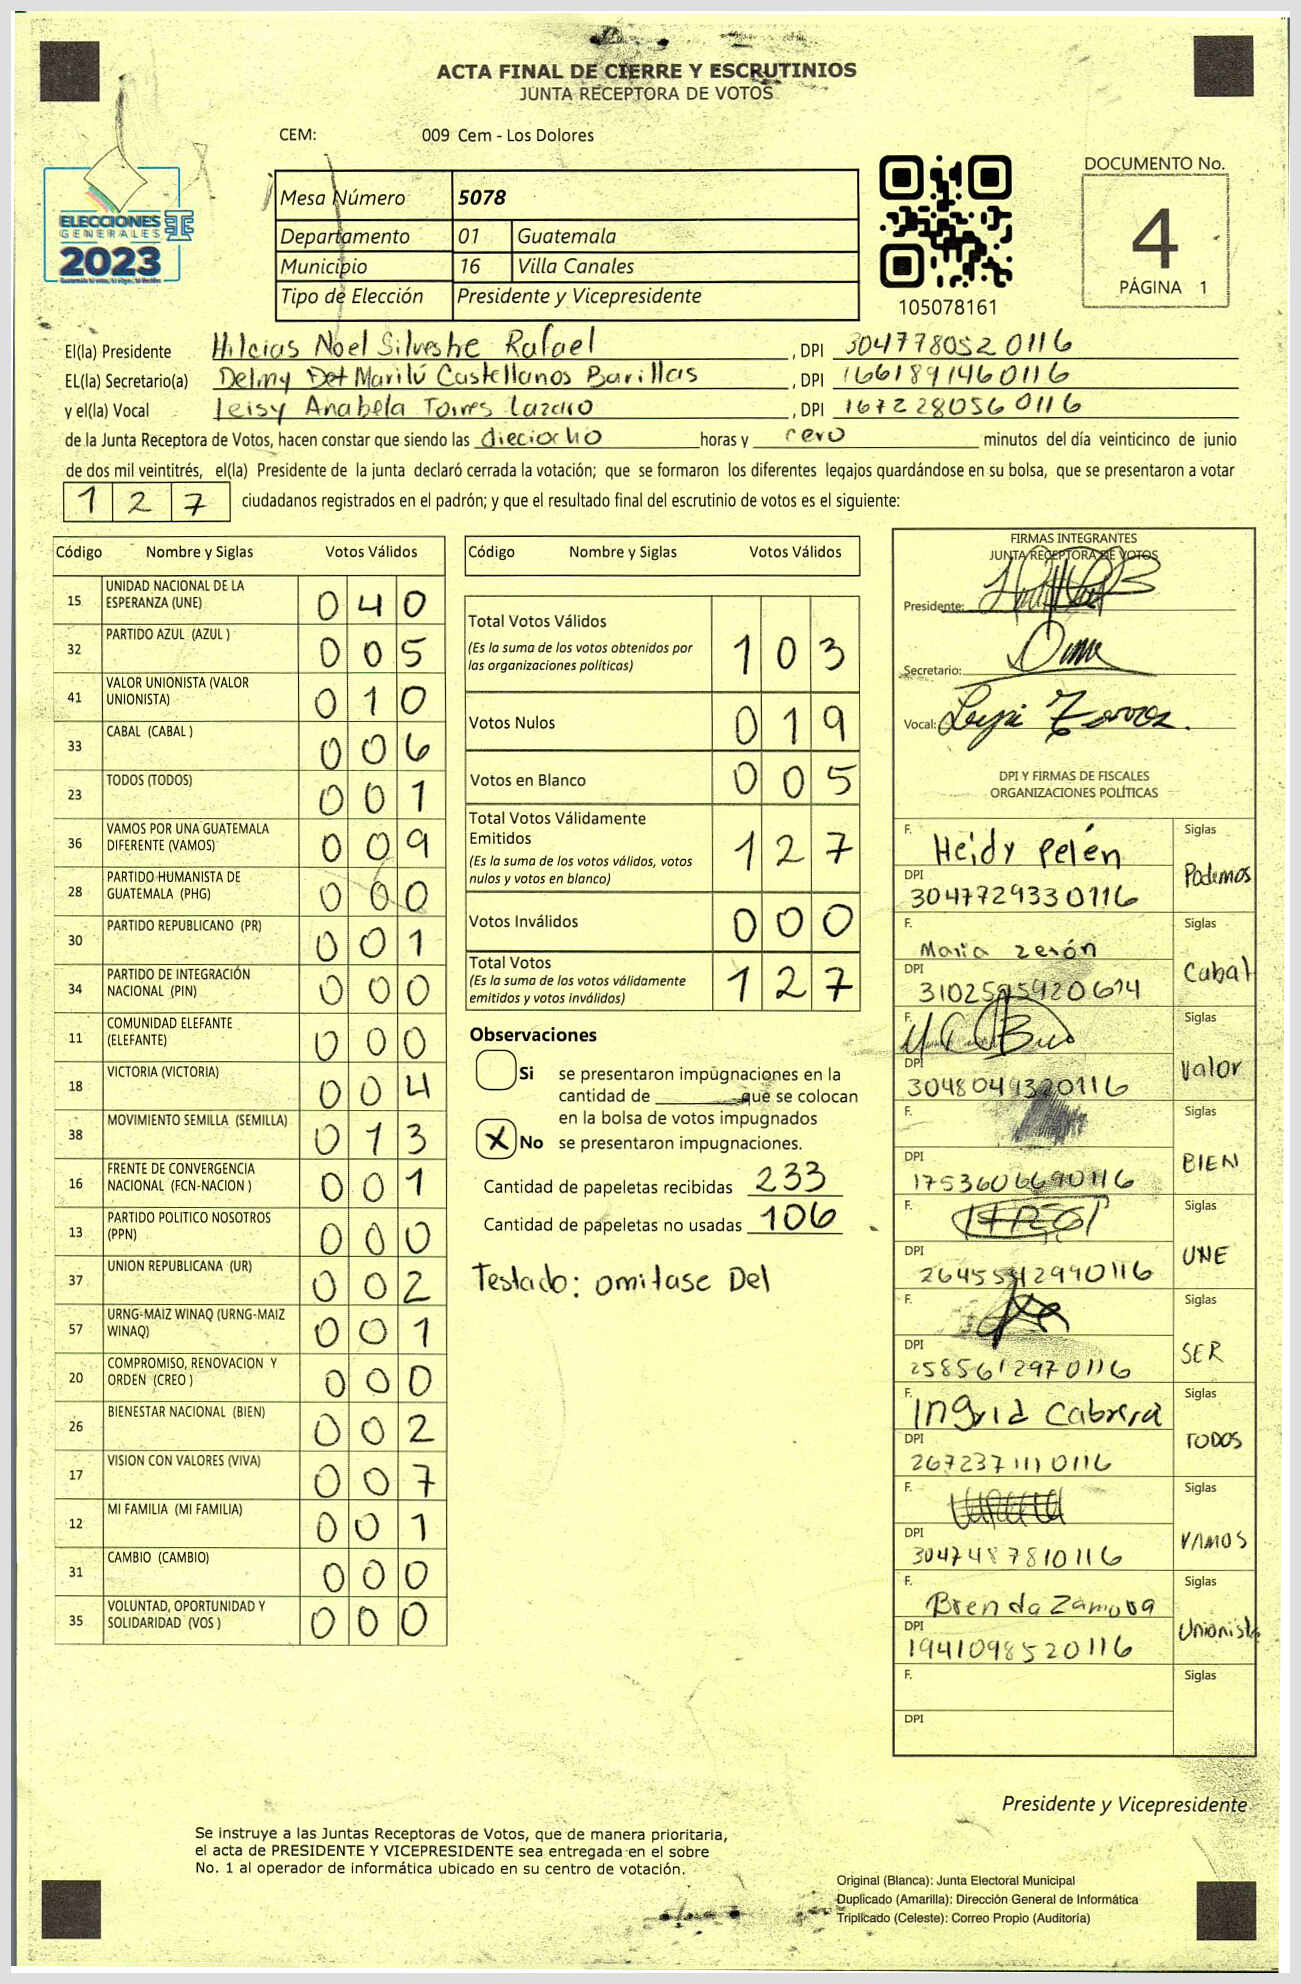 ACTA FINAL DE CIERRE Y ESCRUTINIOS
JUNTA RECEPTORA DE VOTOS
CEM: 009 Cem - Los Dolores
ELECCIONES
GENERALES
2023
Mesa Número 5078
Departamento 01 Guatemala
Municipio 16 Villa Canales
Tipo de Elección Presidente y Vicepresidente
105078161
DOCUMENTO No.
4
PÁGINA 1
El(la) Presidente Hilcias Noel Silvestre Rafael , DPI 3047780520116
EL(la) Secretario(a) Delmy Marilú Castellanos Barillas , DPI 1661891460116
y el(la) Vocal Leisy Anabela Torres Lazaro , DPI 1672280560116
de la Junta Receptora de Votos, hacen constar que siendo las dieciocho horas y cero minutos del día veinticinco de junio
de dos mil veintitrés, el(la) Presidente de la junta declaró cerrada la votación; que se formaron los diferentes legajos quardándose en su bolsa, que se presentaron a votar
127 ciudadanos registrados en el padrón; y que el resultado final del escrutinio de votos es el siguiente:
Código Nombre y Siglas Votos Válidos
15 UNIDAD NACIONAL DE LA ESPERANZA (UNE) 040
32 PARTIDO AZUL (AZUL ) 005
41 VALOR UNIONISTA (VALOR UNIONISTA) 010
33 CABAL (CABAL ) 006
23 TODOS (TODOS) 001
36 VAMOS POR UNA GUATEMALA DIFERENTE (VAMOS) 009
28 PARTIDO HUMANISTA DE GUATEMALA (PHG) 000
30 PARTIDO REPUBLICANO (PR) 001
34 PARTIDO DE INTEGRACIÓN NACIONAL (PIN) 000
11 COMUNIDAD ELEFANTE (ELEFANTE) 000
18 VICTORIA (VICTORIA) 004
38 MOVIMIENTO SEMILLA (SEMILLA) 013
16 FRENTE DE CONVERGENCIA NACIONAL (FCN-NACION ) 001
13 PARTIDO POLITICO NOSOTROS (PPN) 000
37 UNION REPUBLICANA (UR) 002
57 URNG-MAIZ WINAQ (URNG-MAIZ WINAQ) 001
20 COMPROMISO, RENOVACION Y ORDEN (CREO ) 000
26 BIENESTAR NACIONAL (BIEN) 002
17 VISION CON VALORES (VIVA) 007
12 MI FAMILIA (MI FAMILIA) 001
31 CAMBIO (CAMBIO) 000
35 VOLUNTAD, OPORTUNIDAD Y SOLIDARIDAD (VOS ) 000
Código Nombre y Siglas Votos Válidos
Total Votos Válidos 103
(Es la suma de los votos obtenidos por
las organizaciones políticas)
Votos Nulos 019
Votos en Blanco 005
Total Votos Válidamente
Emitidos 127
(Es la suma de los votos válidos, votos
nulos y votos en blanco)
Votos Inválidos 000
Total Votos 127
(Es la suma de los votos válidamente
emitidos y votos inválidos)
Observaciones
Si se presentaron impugnaciones en la
cantidad de ______ que se colocan
en la bolsa de votos impugnados
X No se presentaron impugnaciones.
Cantidad de papeletas recibidas 233
Cantidad de papeletas no usadas 106
Testado: omitase Del
FIRMAS INTEGRANTES
JUNTA RECEPTORA DE VOTOS
Presidente:
Secretario:
Vocal:
DPI Y FIRMAS DE FISCALES
ORGANIZACIONES POLÍTICAS
F. Heidy Pelén Siglas
DPI 3047729330116 Podemos
F. Maria Siglas
DPI Cabal
F. Siglas
DPI 3048049320116 Valor
F. Siglas
DPI 1753606690116 BIEN
F. Siglas
DPI 2645542990116 UNE
F. Siglas
DPI 2585612970116 SER
F. Ingrid Cabrera Siglas
DPI 2672371110116 TODOS
F. Siglas
DPI 3047487810116 VAMOS
F. Brenda Zamora Siglas
DPI 1941098520116 Unionista
F. Siglas
DPI
Presidente y Vicepresidente
Se instruye a las Juntas Receptoras de Votos, que de manera prioritaria,
el acta de PRESIDENTE Y VICEPRESIDENTE sea entregada en el sobre
No. 1 al operador de informática ubicado en su centro de votación.
Original (Blanca): Junta Electoral Municipal
Duplicado (Amarilla): Dirección General de Informática
Triplicado (Celeste): Correo Propio (Auditoría)